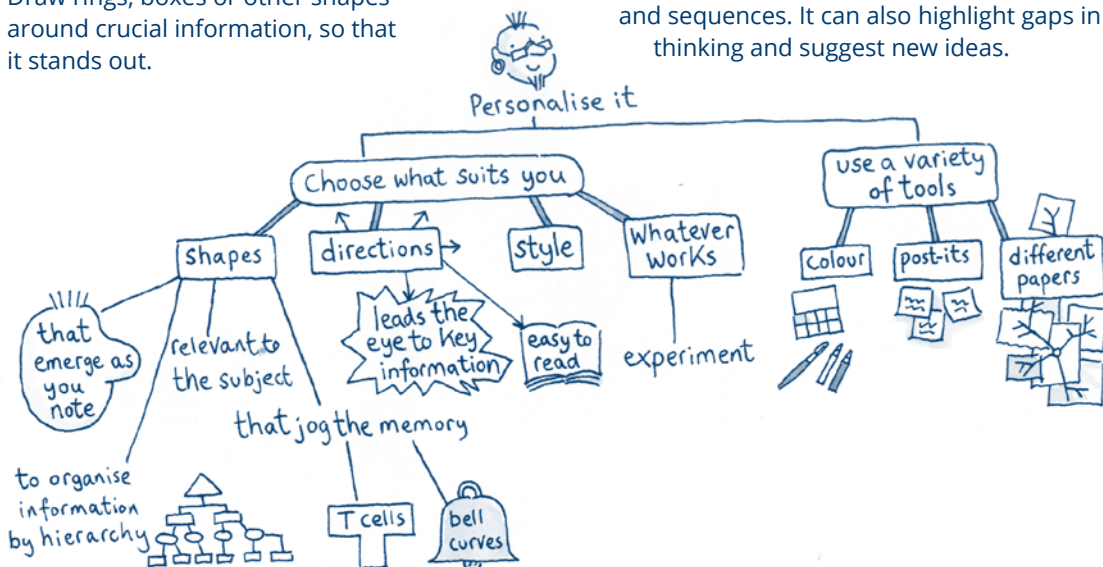 Draw rings, boxes or other shapes
around crucial information, so that
it stands out.
and sequences. It can also highlight gaps in
thinking and suggest new ideas.
Personalise it
Choose what suits you
use a variety
of tools
shapes
directions
style
Whatever
works
Colour
post-its
different
papers
that
emerge as
you
note
relevant to
the subject
leads the
eye to key
information
easy to
read
experiment
that jog the memory
to organise
information
by hierarchy
T cells
bell
curves